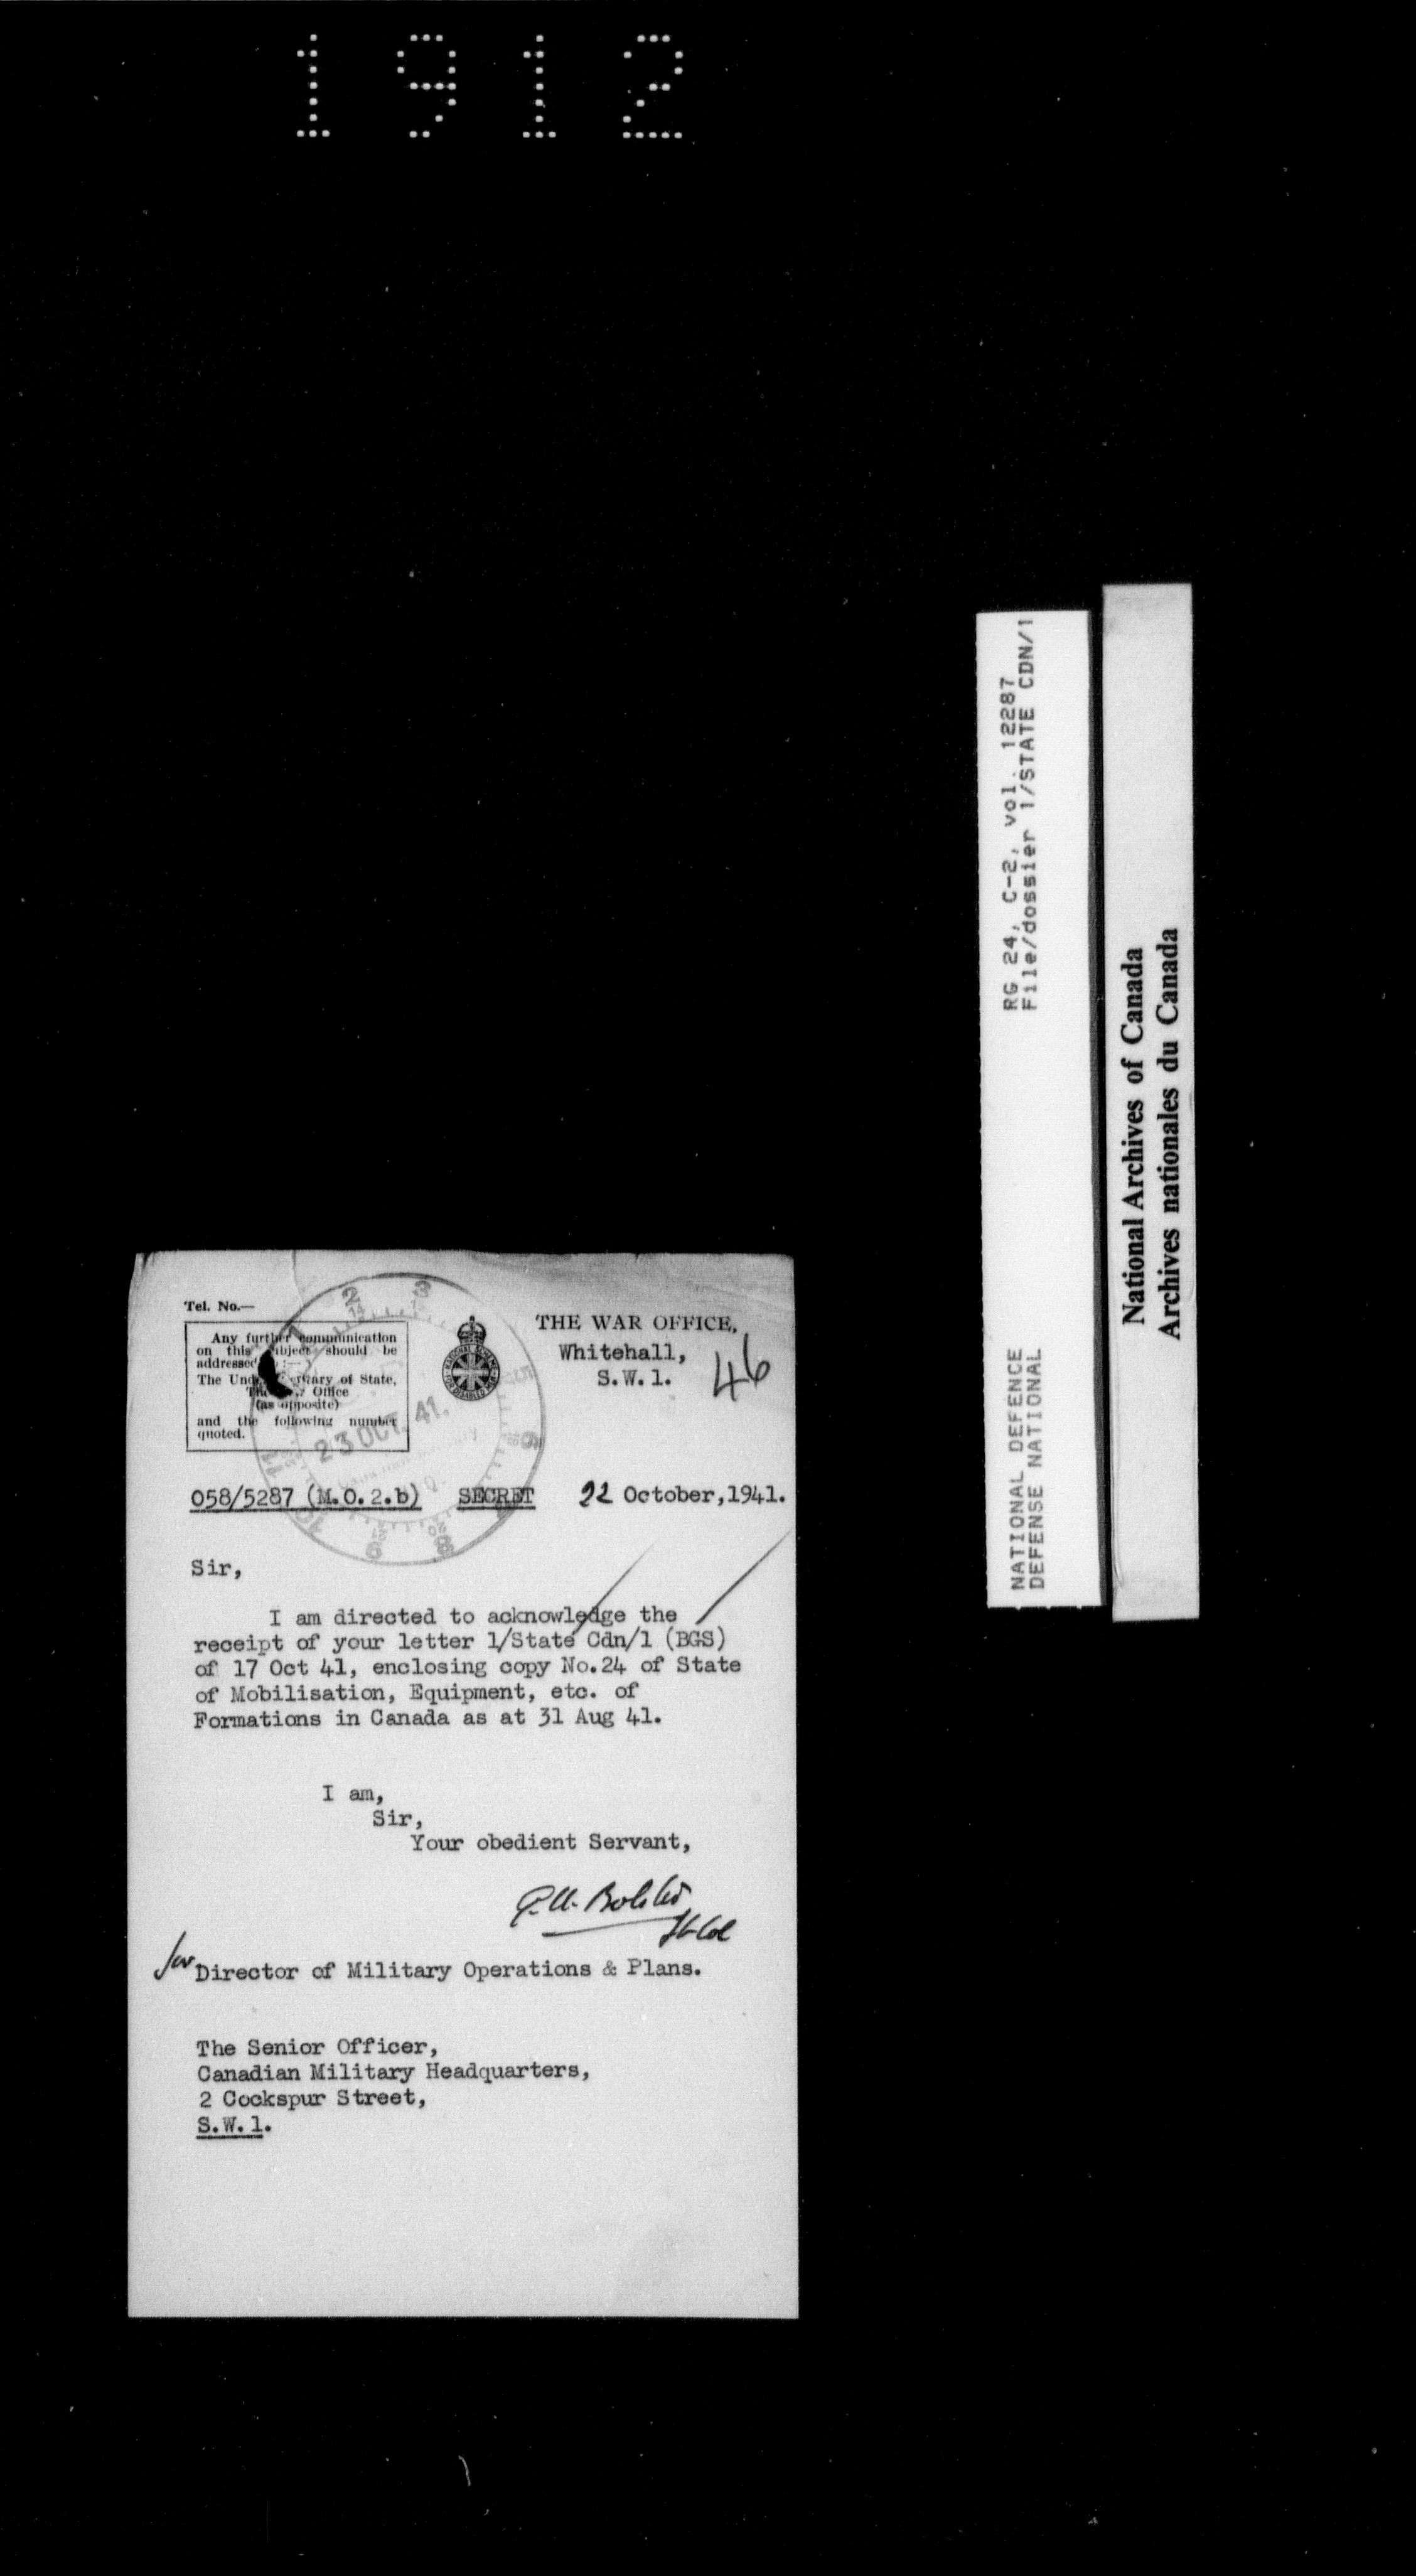 1912
Tel. No.—
Any further communication
on this subject should be
addressed :—
The Secretary of State,
The Office
(as opposite)
and the following number
quoted.
THE WAR OFFICE,
Whitehall,
S.W.1.
46
23 OCT. 41.
058/5287 (M.O.2.b) SECRET 22 October,1941.
Sir,
I am directed to acknowledge the
receipt of your letter 1/State Cdn/1 (BGS)
of 17 Oct 41, enclosing copy No.24 of State
of Mobilisation, Equipment, etc. of
Formations in Canada as at 31 Aug 41.
I am,
Sir,
Your obedient Servant,
Lt Col
for Director of Military Operations & Plans.
The Senior Officer,
Canadian Military Headquarters,
2 Cockspur Street,
S.W.1.
RG 24, C-2, vol. 12287
File/dossier 1/STATE CDN/1
NATIONAL DEFENCE
DEFENSE NATIONAL
National Archives of Canada
Archives nationales du Canada